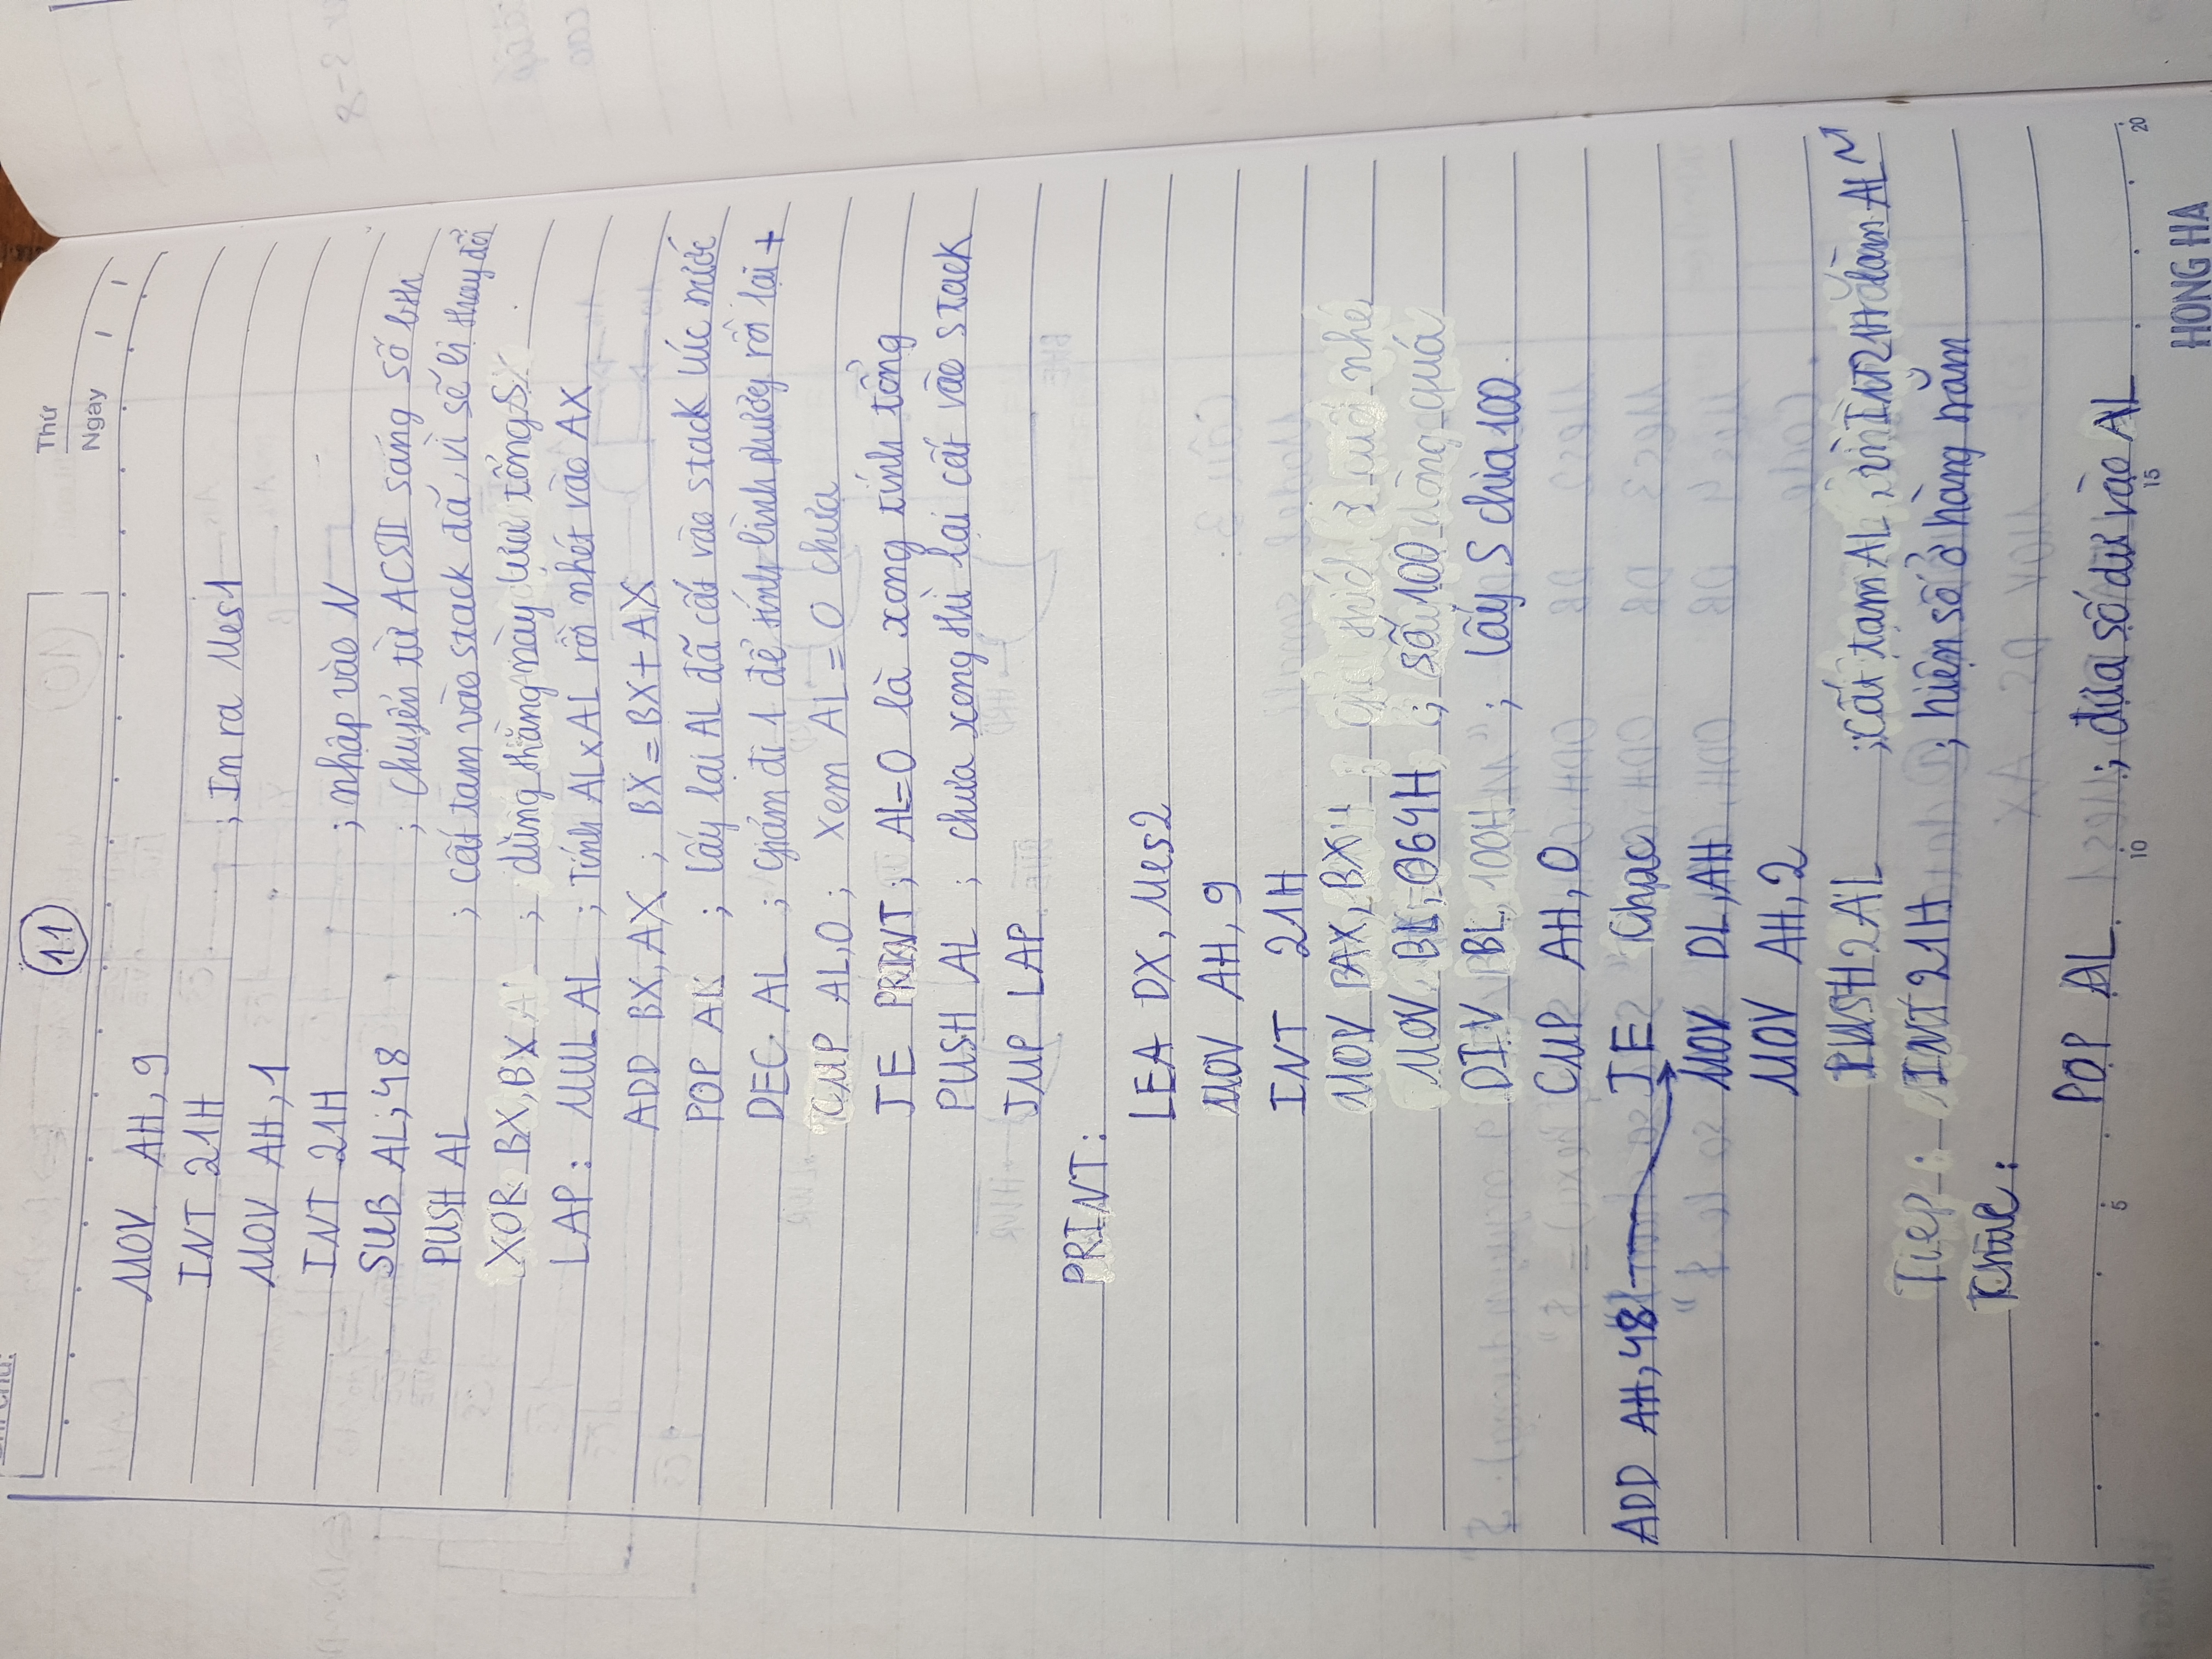 Ghi chú:
11
Thứ
Ngày / /
MOV AH, 9
INT 21H ; In ra Mes1
MOV AH, 1
INT 21H ; nhập vào N
SUB AL, 48 ; chuyển từ ACSII sang số bth
PUSH AL ; cất tạm vào stack đã, vì sẽ bị thay đổi
XOR BX, BX ; dùng thằng này lưu tổng S
LAP: MUL AL ; Tính ALxAL rồi nhét vào AX
ADD BX, AX ; BX = BX + AX
POP AL ; lấy lại AL đã cất vào stack lúc trước
DEC AL ; giảm đi 1 để tính bình phương rồi lại +
CMP AL, 0 ; xem AL = 0 chưa
JE PRINT ; AL=0 là xong tính tổng
PUSH AL ; chưa xong thì lại cất vào stack
JMP LAP
PRINT:
LEA DX, Mes2
MOV AH, 9
INT 21H
MOV AX, BX
MOV BL, 064H ; số 100
DIV BL ; lấy S chia 100
CMP AH, 0
ADD AH, 48 JE
MOV DL, AH
MOV AH, 2
PUSH AL ; cất tạm AL, vì INT21H làm AL
Tiep: INT 21H ; hiện số ở hàng trăm
POP AL ; đưa số dư vào AL
5 10 15 20
HONG HA